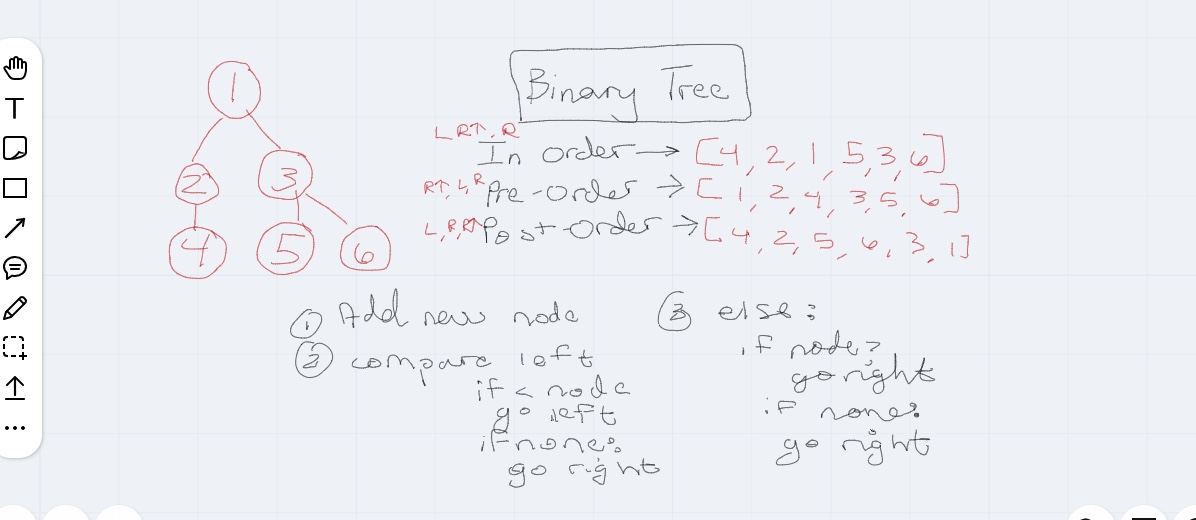 Binary Tree
1
2
3
4
5
6
L RT, R
In order → [4, 2, 1, 5, 3, 6]
RT, L, R
Pre-order → [1, 2, 4, 3, 5, 6]
L, R, RT
Post-order → [4, 2, 5, 6, 3, 1]
① Add new node
② compare left
if < node
go left
if none:
go right
③ else:
if node?
go right
if none:
go right
T